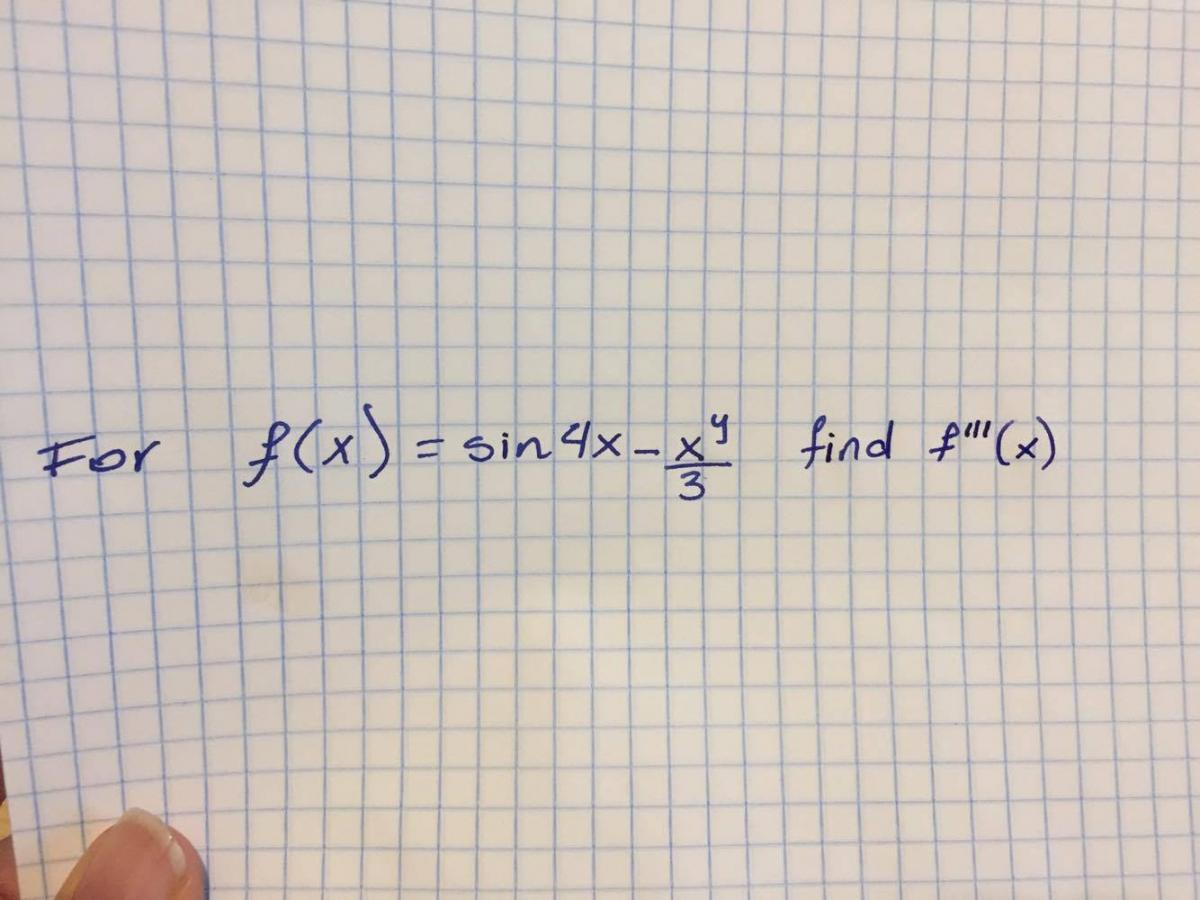 For f(x) = sin 4x - x⁴/3 find f''''(x)